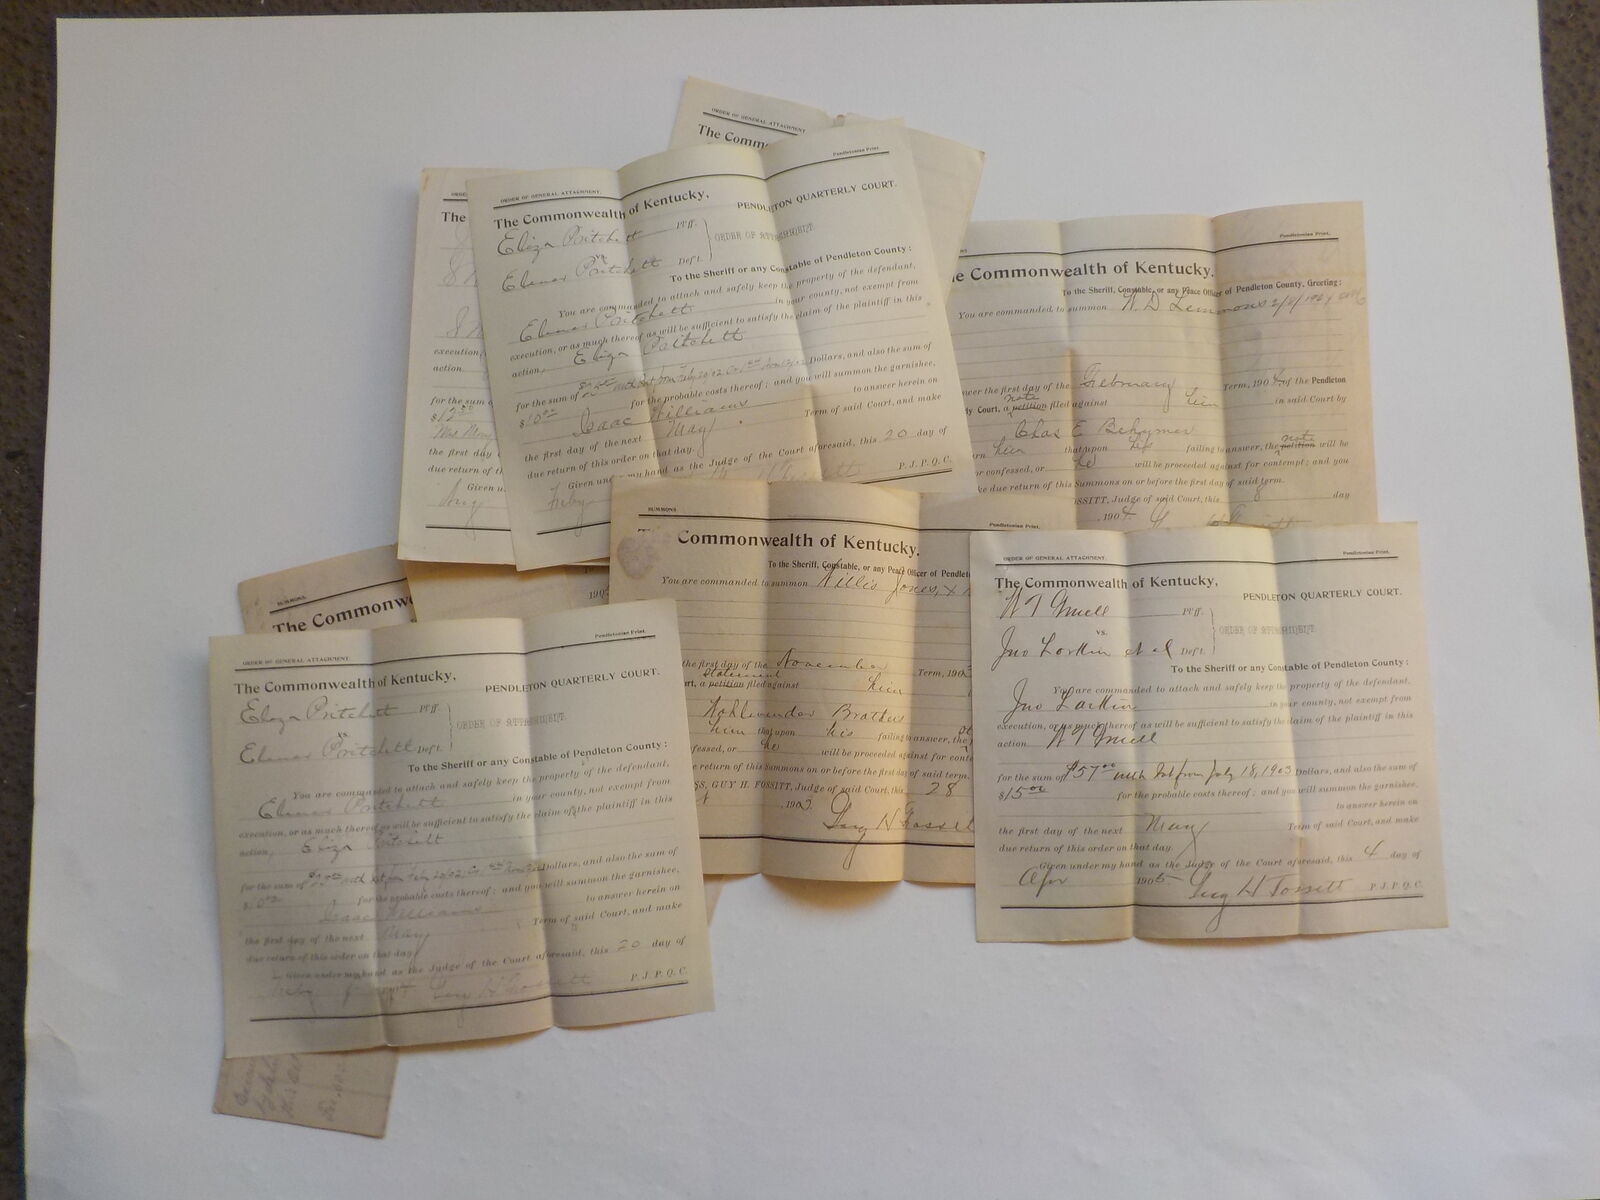 ORDER OF GENERAL ATTACHMENT.
The Comm
The
action.
for the sum o
$12.50
the first day
due return of th
Given u
Aug
ORDER OF GENERAL ATTACHMENT.
Pendletonian Print.
The Commonwealth of Kentucky,
PENDLETON QUARTERLY COURT.
Eliza Pritchett Pl'ff.
vs
ORDER OF ATTACHMENT
Ebenar Pritchett Deft.
To the Sheriff or any Constable of Pendleton County:
You are commanded to attach and safely keep the property of the defendant,
Ebenar Pritchett in your county, not exempt from
execution, or as much thereof as will be sufficient to satisfy the claim of the plaintiff in this
action, Eliza Pritchett
for the sum of Dollars, and also the sum of
$10.00 for the probable costs thereof; and you will summon the garnishee,
Isaac Williams to answer herein on
the first day of the next May Term of said Court, and make
due return of this order on that day.
Given under my hand as the Judge of the Court aforesaid, this 20 day of
Feby P. J. P. Q. C.
Pendletonian Print.
he Commonwealth of Kentucky.
To the Sheriff, Constable, or any Peace Officer of Pendleton County, Greeting:
You are commanded to summon W. D. Lemmons
wer the first day of the February Term, 1904 of the Pendleton
note
y Court, a petition filed against him in said Court by
Chas E Behymer
rn him that upon his failing to answer, the petition will be
note
r confessed, or he will be proceeded against for contempt; and you
ke due return of this Summons on or before the first day of said term.
OSSITT, Judge of said Court, this 8 day
, 1904.
SUMMONS.
Pendletonian Print.
Commonwealth of Kentucky.
To the Sheriff, Constable, or any Peace Officer of Pendlet
You are commanded to summon Willis Jones,
the first day of the November Term, 190
Statement
rt, a petition filed against him
Brothers
him that upon his failing to answer, the
fessed, or he will be proceeded against for conte
e return of this Summons on or before the first day of said term.
SS, GUY H. FOSSITT, Judge of said Court, this 28
, 190
Guy H Fossitt
ORDER OF GENERAL ATTACHMENT.
Pendletonian Print.
The Commonwealth of Kentucky,
PENDLETON QUARTERLY COURT.
Pl'ff.
vs.
ORDER OF ATTACHMENT
Jno Larkin et al Deft.
To the Sheriff or any Constable of Pendleton County:
You are commanded to attach and safely keep the property of the defendant,
Jno Larkin in your county, not exempt from
execution, or as much thereof as will be sufficient to satisfy the claim of the plaintiff in this
action
for the sum of $57.00 with Int from July 18, 1903 Dollars, and also the sum of
$15.00 for the probable costs thereof; and you will summon the garnishee,
to answer herein on
the first day of the next May Term of said Court, and make
due return of this order on that day.
Given under my hand as the Judge of the Court aforesaid, this 4 day of
Apr 1905 Guy H Fossitt P. J. P. Q. C.
SUMMONS.
The Commonw
190
ORDER OF GENERAL ATTACHMENT.
Pendletonian Print.
The Commonwealth of Kentucky,
PENDLETON QUARTERLY COURT.
Eliza Pritchett Pl'ff.
vs
ORDER OF ATTACHMENT
Ebenar Pritchett Deft.
To the Sheriff or any Constable of Pendleton County:
You are commanded to attach and safely keep the property of the defendant,
Ebenar Pritchett in your county, not exempt from
execution, or as much thereof as will be sufficient to satisfy the claim of the plaintiff in this
action, Eliza Pritchett
for the sum of Dollars, and also the sum of
$10.00 for the probable costs thereof; and you will summon the garnishee,
Isaac Williams to answer herein on
the first day of the next May Term of said Court, and make
due return of this order on that day
Given under my hand as the Judge of the Court aforesaid, this 20 day of
Feby Guy H Fossitt P. J. P. Q. C.